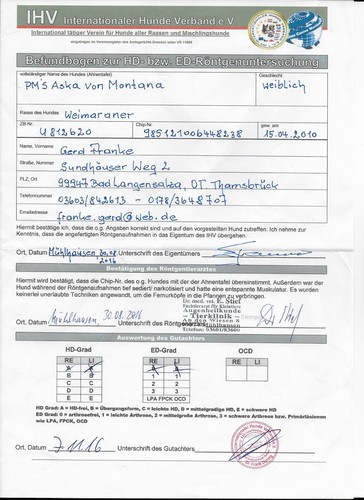 IHV Internationaler Hunde Verband e.V
International tätiger Verein für Hunde aller Rassen und Mischlingshunde
eingetragen im Vereinsregister des Amtsgerichts Dresden unter VR 11669
Befundbogen zur HD- bzw. ED-Röntgenuntersuchung
vollständiger Name des Hundes (Ahnentafel) Geschlecht
PM's Aska von Montana weiblich
Rasse des Hundes
Weimaraner
ZB-Nr. Chip-Nr. gew. am
U 812620 985121006448238 15.04.2010
Name, Vorname
Gerd Franke
Straße, Nummer
Sundhäuser Weg 2
PLZ, Ort
99947 Bad Langensalza, OT Thamsbrück
Telefonnummer
03603/842613 - 0178/3648707
Emailadresse
franke.gerd@web.de
Hiermit bestätige ich, dass die o.g. Angaben korrekt sind und auf den vorgestellten Hund zutreffen. Ich nehme zur
Kenntnis, dass die angefertigten Röntgenaufnahmen in das Eigentum des IHV übergehen.
Ort, Datum Mühlhausen 30.08 2016 Unterschrift des Eigentümers
Bestätigung des Röntgentierarztes
Hiermit wird bestätigt, dass die Chip-Nr. des o.g. Hundes mit der der Ahnentafel übereinstimmt. Außerdem war der
Hund während der Röntgenaufnahmen tief sediert/ narkotisiert und hatte eine entspannte Muskulatur. Es wurden
keinerlei unerlaubte Techniken angewandt, um die Femurköpfe in die Pfannen zu verbringen.
Dr. med. vet. E. Stief
Fachtierarzt für Kleintiere
Augenheilkunde
- Tierklinik -
An den Wiesen 8
Mühlhausen
Telefon: 03601/83600
Ort, Datum Mühlhausen, 30.08.2016 Unterschrift des Röntgentierarztes
Auswertung des Gutachters
HD-Grad ED-Grad OCD
RE LI RE LI RE LI
A A
B B 1 1
C C 2 2
D D 3 3
E E LPA FPCK OCD
HD Grad: A = HD-frei, B = Übergangsform, C = leichte HD, D = mittelgradige HD, E = schwere HD
ED Grad: 0 = arthrosefrei, 1 = leichte Arthrose, 2 = mittelgroße Arthrose, 3 = schwere Arthrose bzw. Primärläsionen
wie LPA, FPCK, OCD
Ort, Datum 7.11.16 Unterschrift des Gutachters